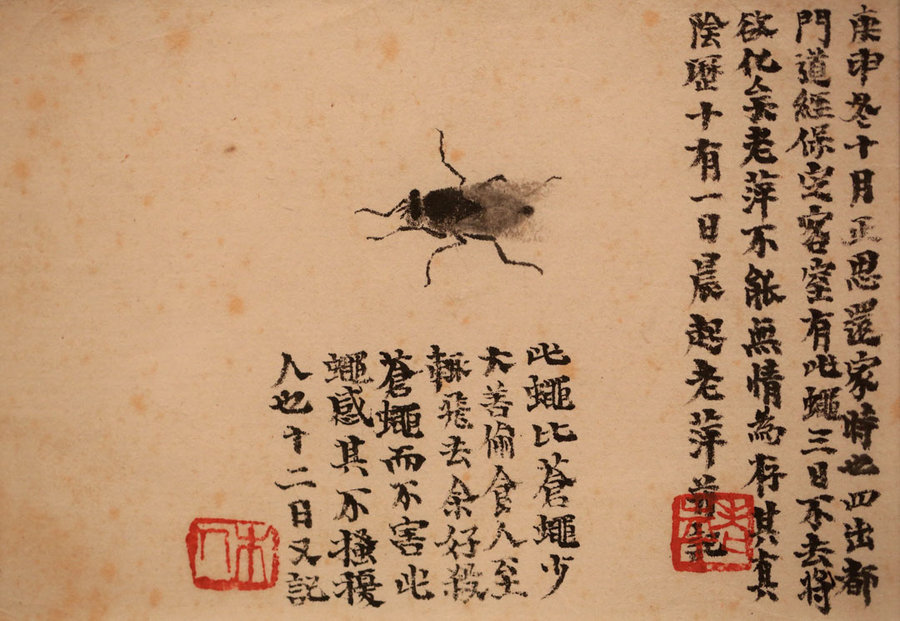 庚申冬十月正思還家時也四出都
門道經保定客室有此蠅三日不去將
欲化矣老萍不能無情為存其真
陰歷十有一日晨起老萍并記
此蠅比蒼蠅少
大善偷食人至
輒飛去余好殺
蒼蠅而不害此
蠅感其不搔擾
人也十二日又記
木人